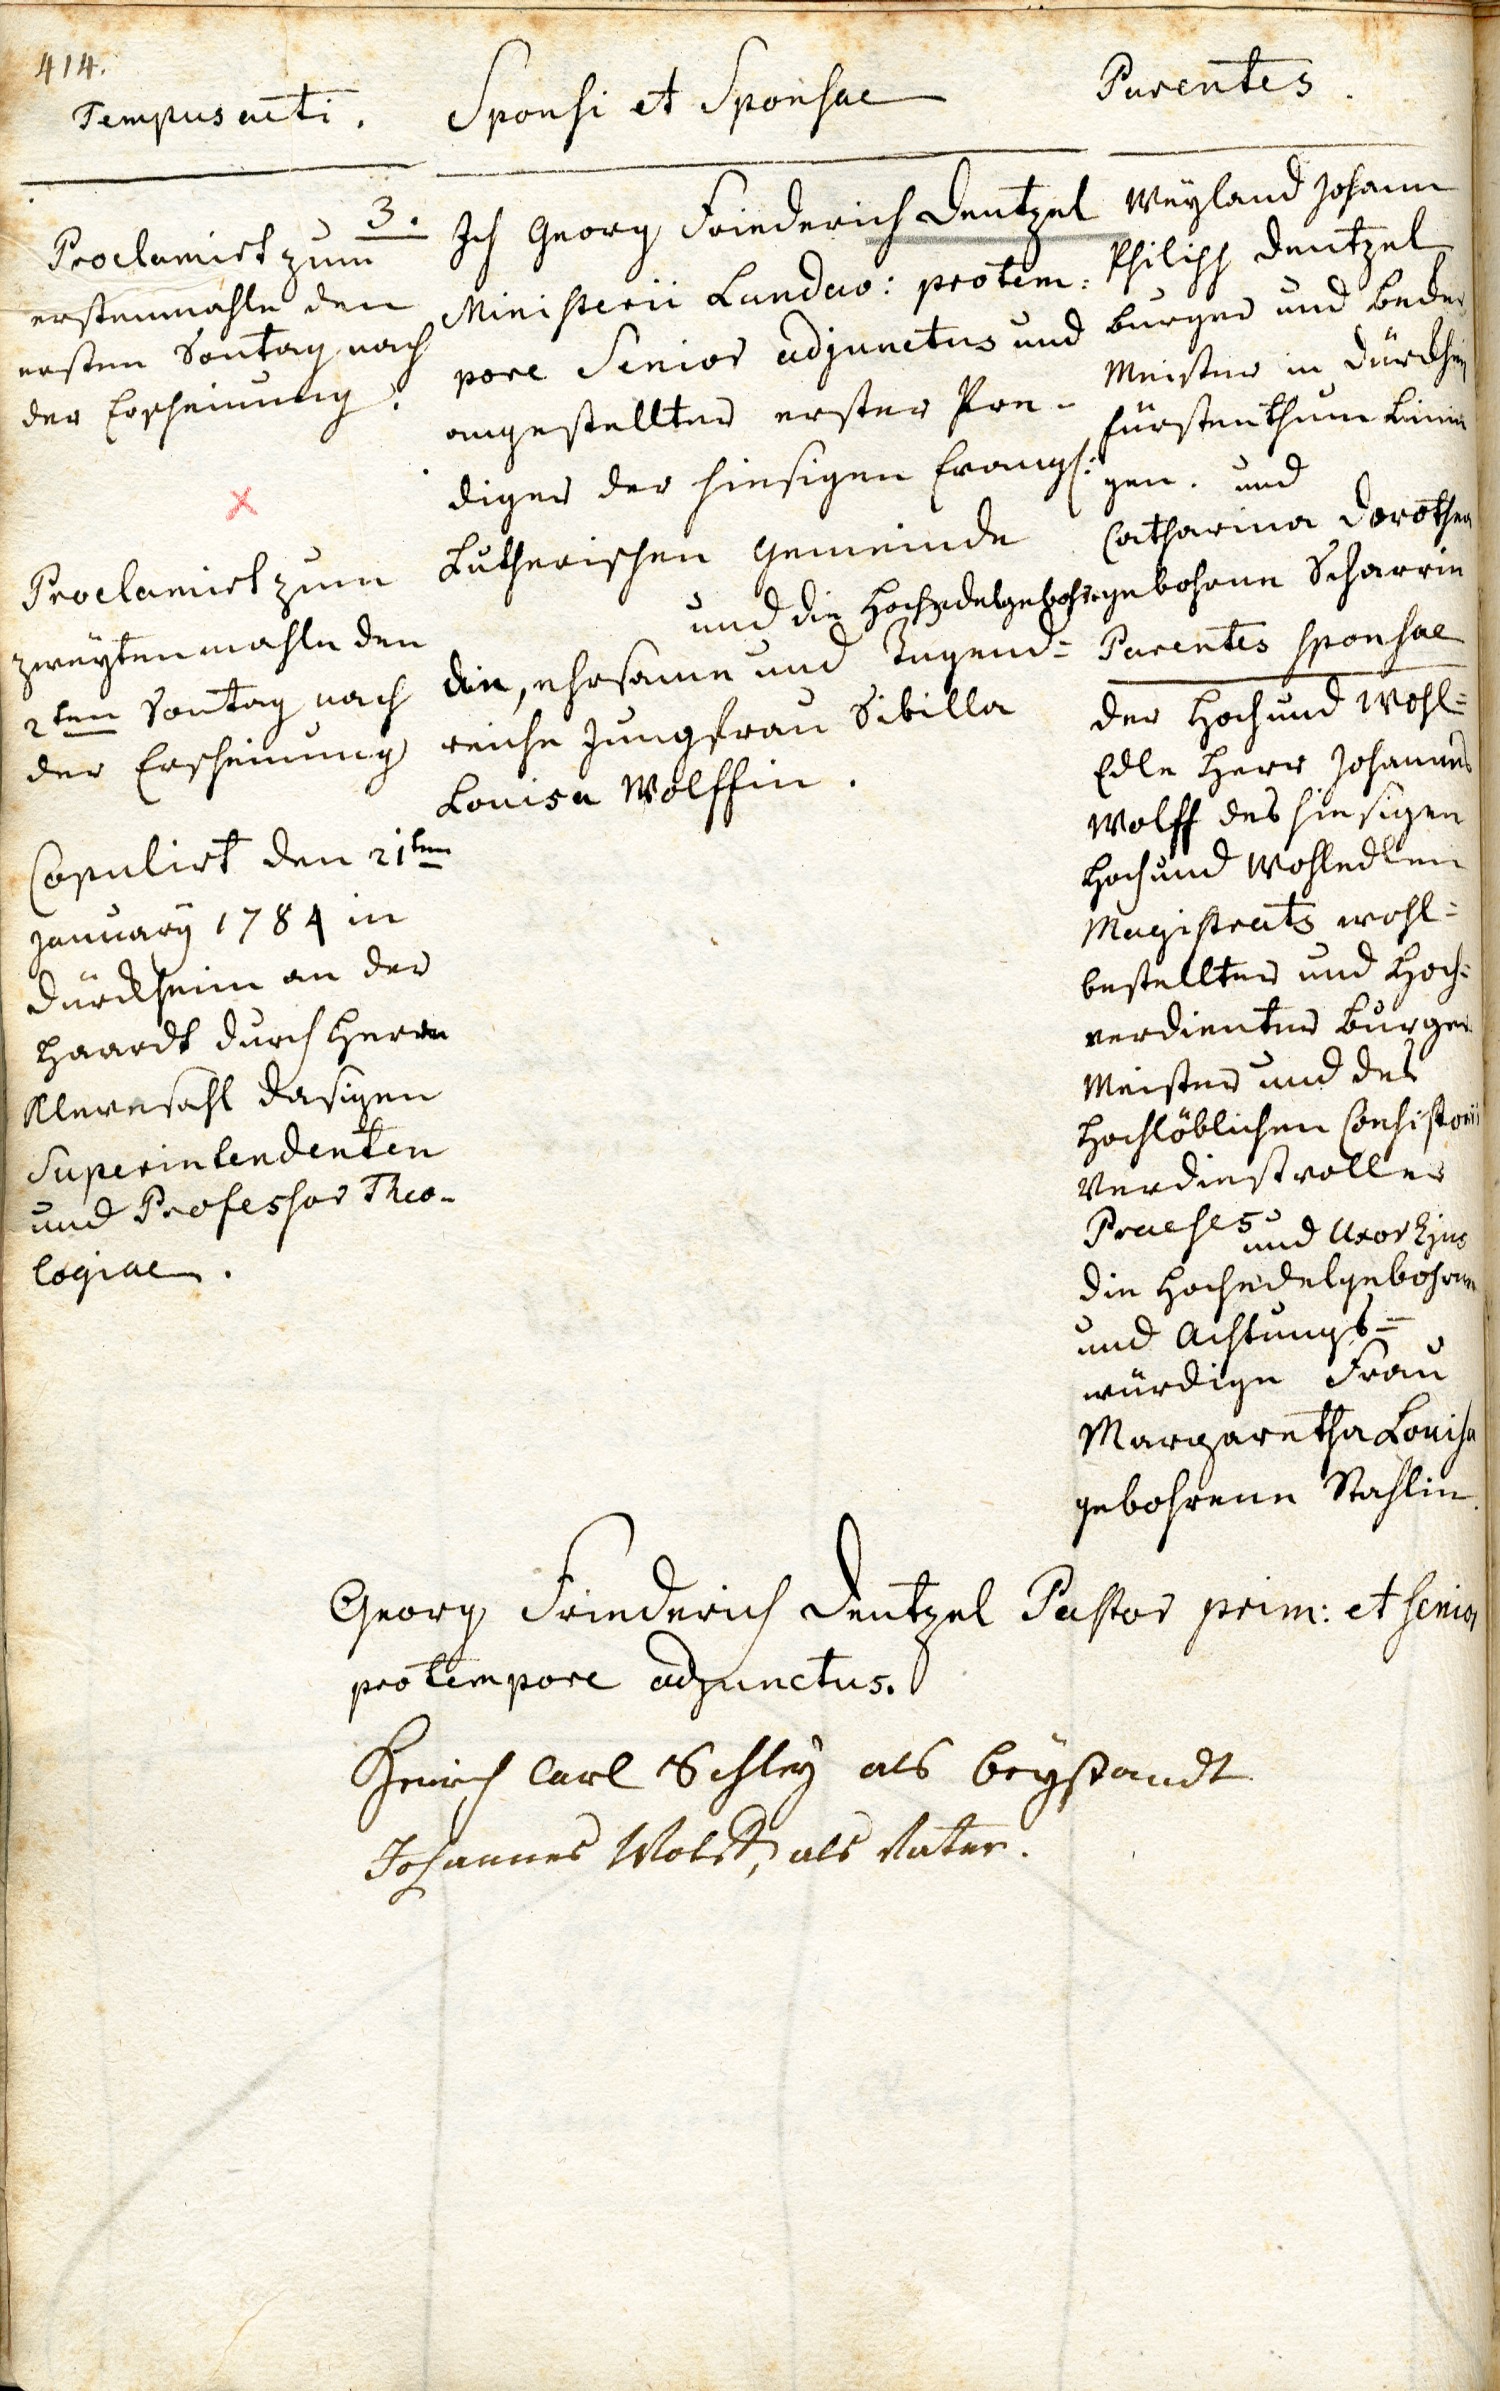 414.
Tempus acti.
Proclamirt zum
erstenmahle den
ersten Sontag nach
der Erscheinung.
Proclamirt zum
zweytenmahle den
2ten Sontag nach
der Erscheinung
Copulirt den 21ten
January 1784 in
Dürckheim an der
Haardt durch Herrn
dasigen
Superintendenten
und Professor Theo-
logiae.
Sponsi et Sponsae
3.
Ich Georg Friederich Dentzel
Ministerii Landav: protem:
pore Senior adjunctus und
angestellter erster Pre-
diger der hiesigen Evangl:
Lutherischen Gemeinde
und die Hochedelgebohr-
die, ehrsame und Tugend=
reiche Jungfrau Sibilla
Louisa Wolffin.
Parentes.
Weyland Johann
Philipp Dentzel
burger und
Meister in Dürckheim
Fürstenthum Leinin
gen. und
Catharina Dorothea
gebohrne Scharrin
Parentes sponsae
der Hoch und Wohl=
Edle Herr Johannes
Wolff des hiesigen
Hoch und Wohledlen
Magistrats wohl=
bestellter und Hoch=
verdienter Burger
Meister und des
Hochlöblichen Consistorii
Verdienstvoller
Praeses
und Uxor Ejus
die Hochedelgebohrne
und Achtungs=
würdige Frau
Margaretha Louisa
gebohrene Stahlin.
Georg Friederich Dentzel Pastor prim: et senior
protempore adjunctus.
Henrich Carl Schley als beystandt
Johannes Wolff, als Vater.